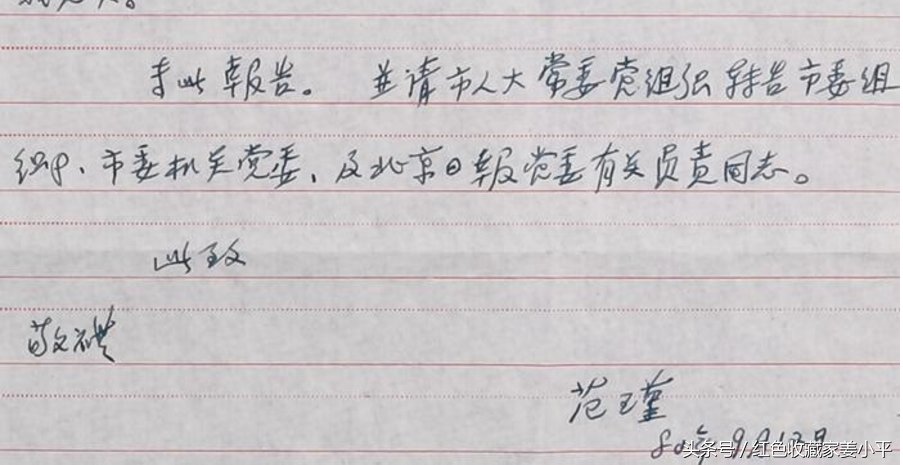 专此报告。 并请市人大常委党组张转告市委组
织卩、市委机关党委、及北京日報党委有关负责同志。
此致
敬礼
范瑾
80年9月12日
头条号/红色收藏家姜小平